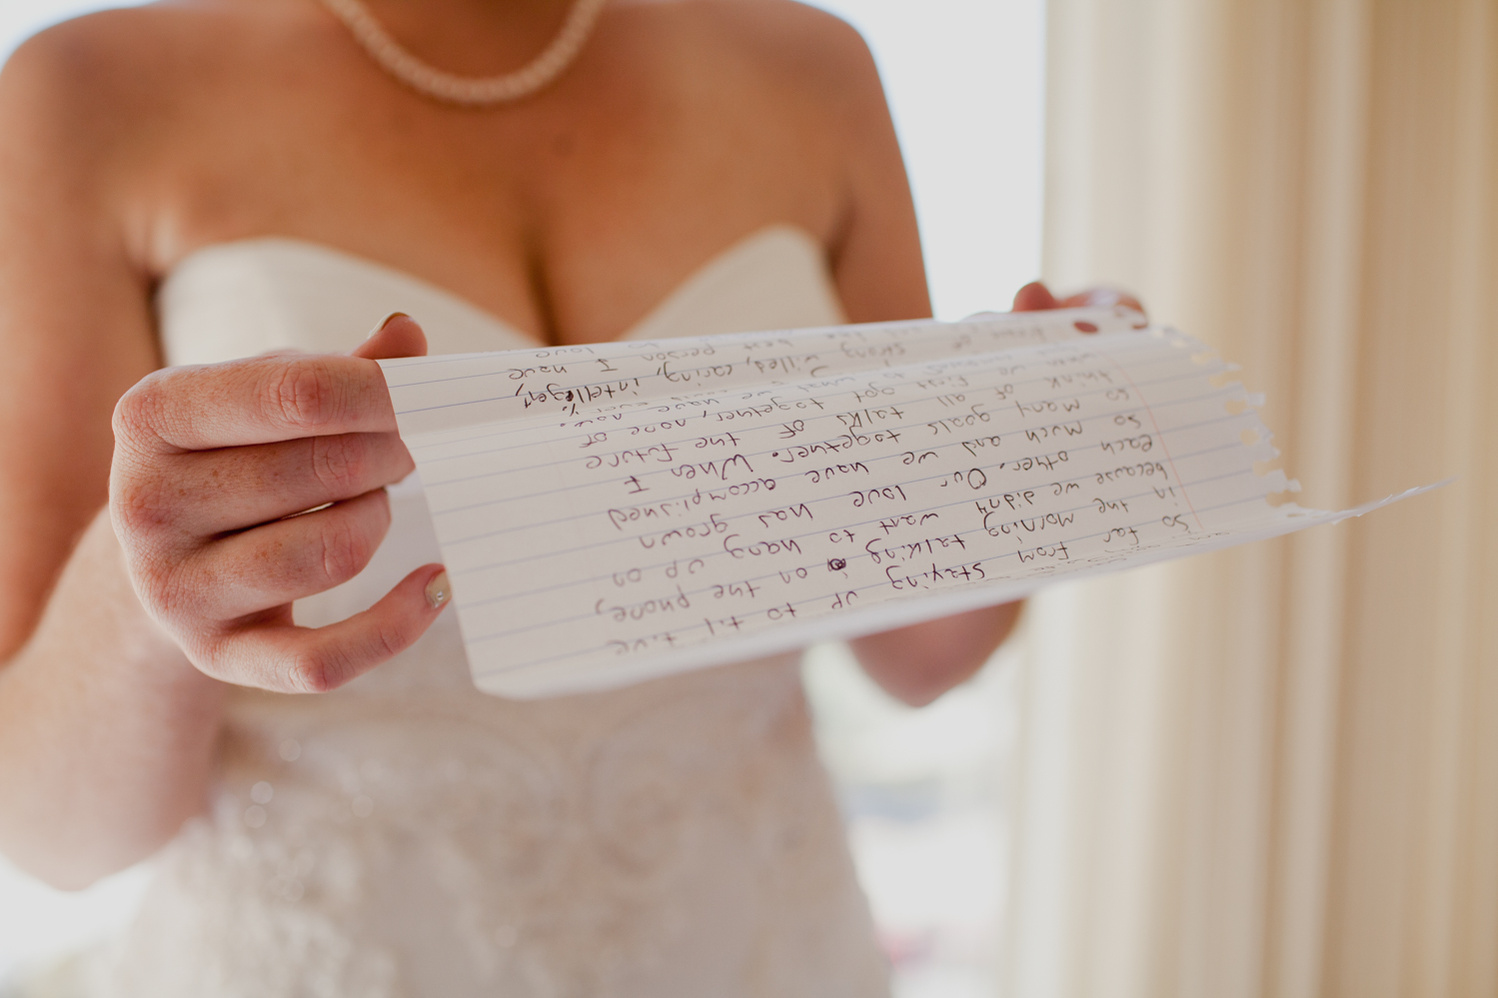 So far from staying up to til five
in the morning talking on the phone,
because we didn't want to hang up on
each other. Our love has grown
so much and we have accomplished
so many goals together. When I
think of all talks of the future
when we first got together, none of
to what we have now.
strong willed, caring,
best person I have
to love